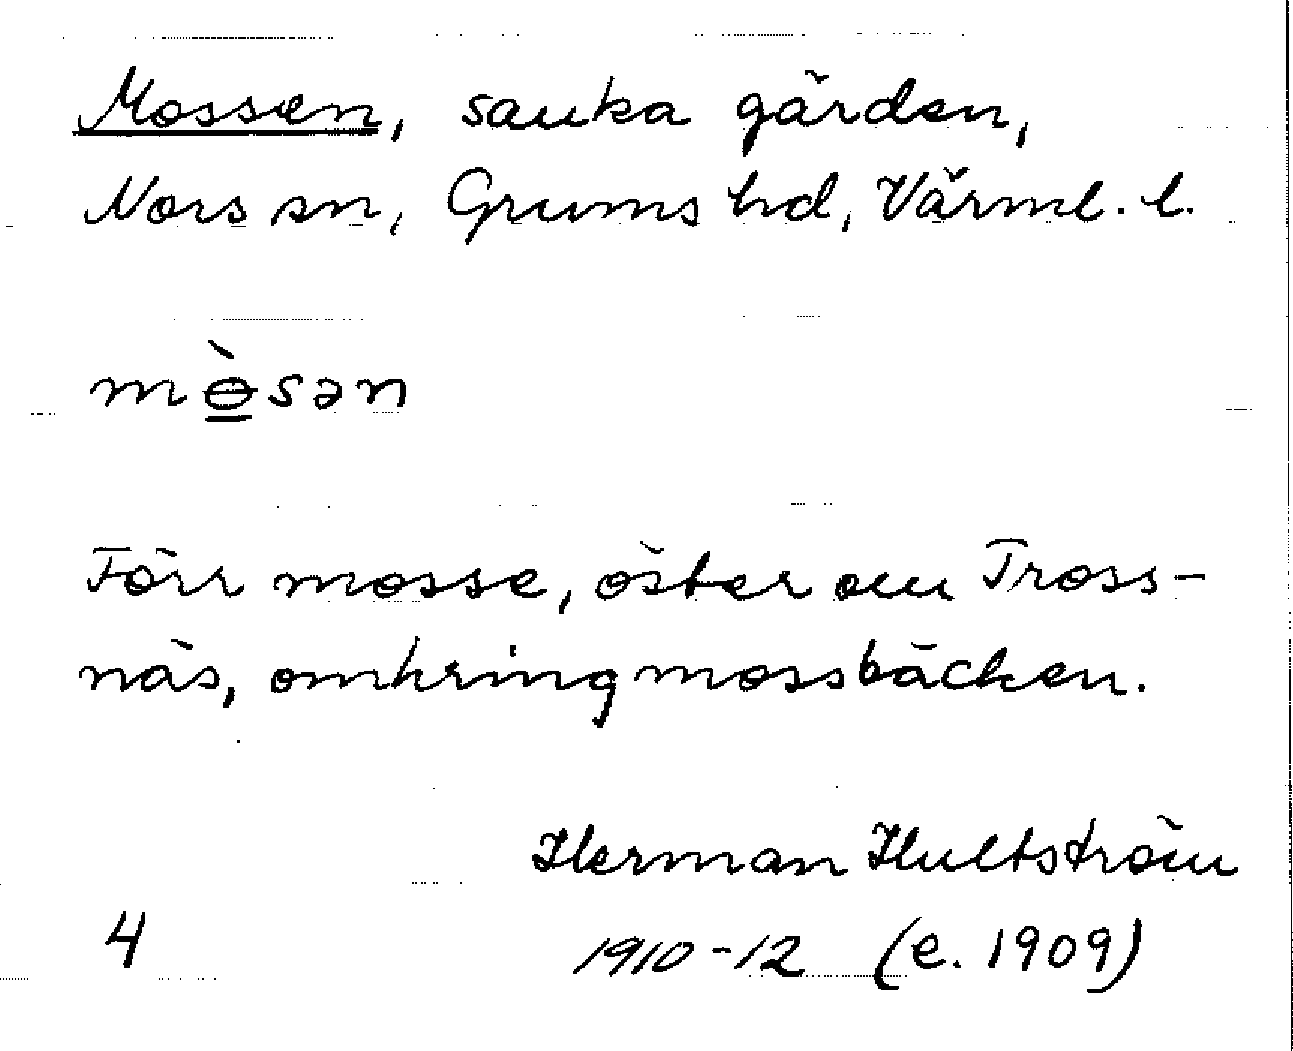 Mossen, sanka gärden,
Nors sn, Grums hd, Värml. l.
mɵ̲̀sən
Förr mosse, öster om Tross-
näs, omkring mossbäcken.
Herman Hultström
4 1910-12 (e. 1909)